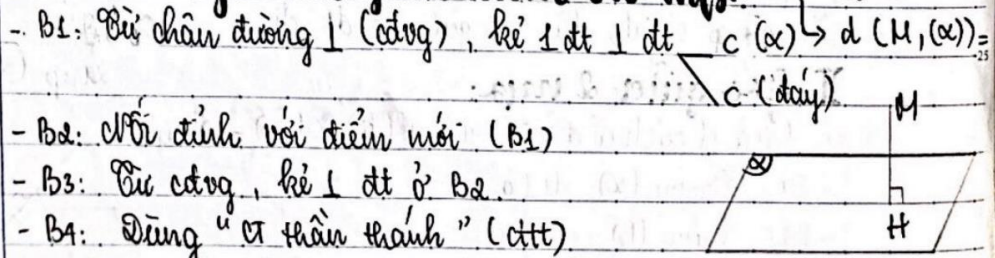 - B1: Từ chân đường ⊥ (cđvg), kẻ 1 đt ⊥ đt ⊂ (α) ↳ d (M, (α)) =
⊂ (đáy)
M
- B2: Nối đỉnh với điểm mới (B1)
α
- B3: Từ cđvg, kẻ ⊥ đt ở B2.
- B4: Dùng "CT thần thánh" (cttt)
H